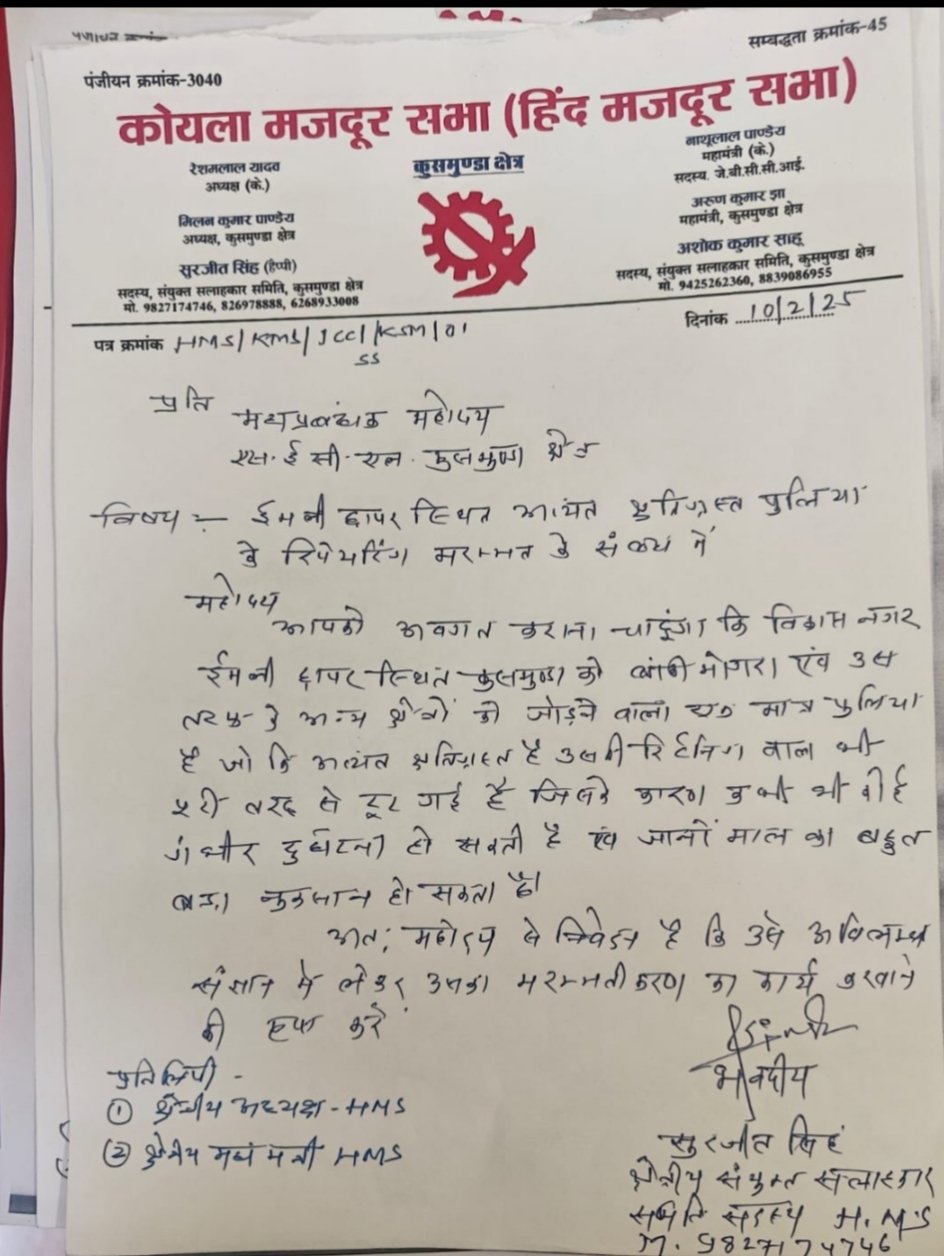 सम्बद्धता क्रमांक-45
पंजीयन क्रमांक-3040
कोयला मजदूर सभा (हिंद मजदूर सभा)
कुसमुण्डा क्षेत्र
रेशमलाल यादव
अध्यक्ष (के.)
मिलन कुमार पाण्डेय
अध्यक्ष, कुसमुण्डा क्षेत्र
सुरजीत सिंह (हैप्पी)
सदस्य, संयुक्त सलाहकार समिति, कुसमुण्डा क्षेत्र
मो. 9827174746, 826978888, 6268933008
नाथूलाल पाण्डेय
महामंत्री (के.)
सदस्य. जे.बी.सी.सी.आई.
अरुण कुमार झा
महामंत्री, कुसमुण्डा क्षेत्र
अशोक कुमार साहू
सदस्य, संयुक्त सलाहकार समिति, कुसमुण्डा क्षेत्र
मो. 9425262360, 8839086955
पत्र क्रमांक HMS/KMS/JCC/KSM/01
SS
दिनांक 10/2/25
प्रति
महाप्रबंधक महोदय
एस.ई.सी.एल. कुसमुण्डा क्षेत्र
विषय :- ईमली छापर स्थित अत्यंत क्षतिग्रस्त पुलिया
के रिपेयरिंग मरम्मत के संबंध में
महोदय
आपको अवगत कराना चाहूंगा कि विकास नगर
ईमली छापर स्थित कुसमुण्डा को बांकी मोंगरा एवं उस
तरफ के अन्य क्षेत्रों को जोड़ने वाला एक मात्र पुलिया
है जो कि अत्यंत क्षतिग्रस्त है उसकी रिटेनिंग वाल भी
पूरी तरह से टूट गई है जिसके कारण कभी भी कोई
गंभीर दुर्घटना हो सकती है एवं जानों माल का बहुत
बड़ा नुकसान हो सकता है।
अतः महोदय से निवेदन है कि उसे अविलम्ब
संज्ञान में लेकर उसका मरम्मतीकरण का कार्य करवाने
की कृपा करें
भवदीय
सुरजीत सिंह
क्षेत्रीय संयुक्त सलाहकार
समिति सदस्य H.M.S
M. 9827174746
प्रतिलिपी -
① क्षेत्रीय अध्यक्ष - HMS
② क्षेत्रीय महामंत्री HMS